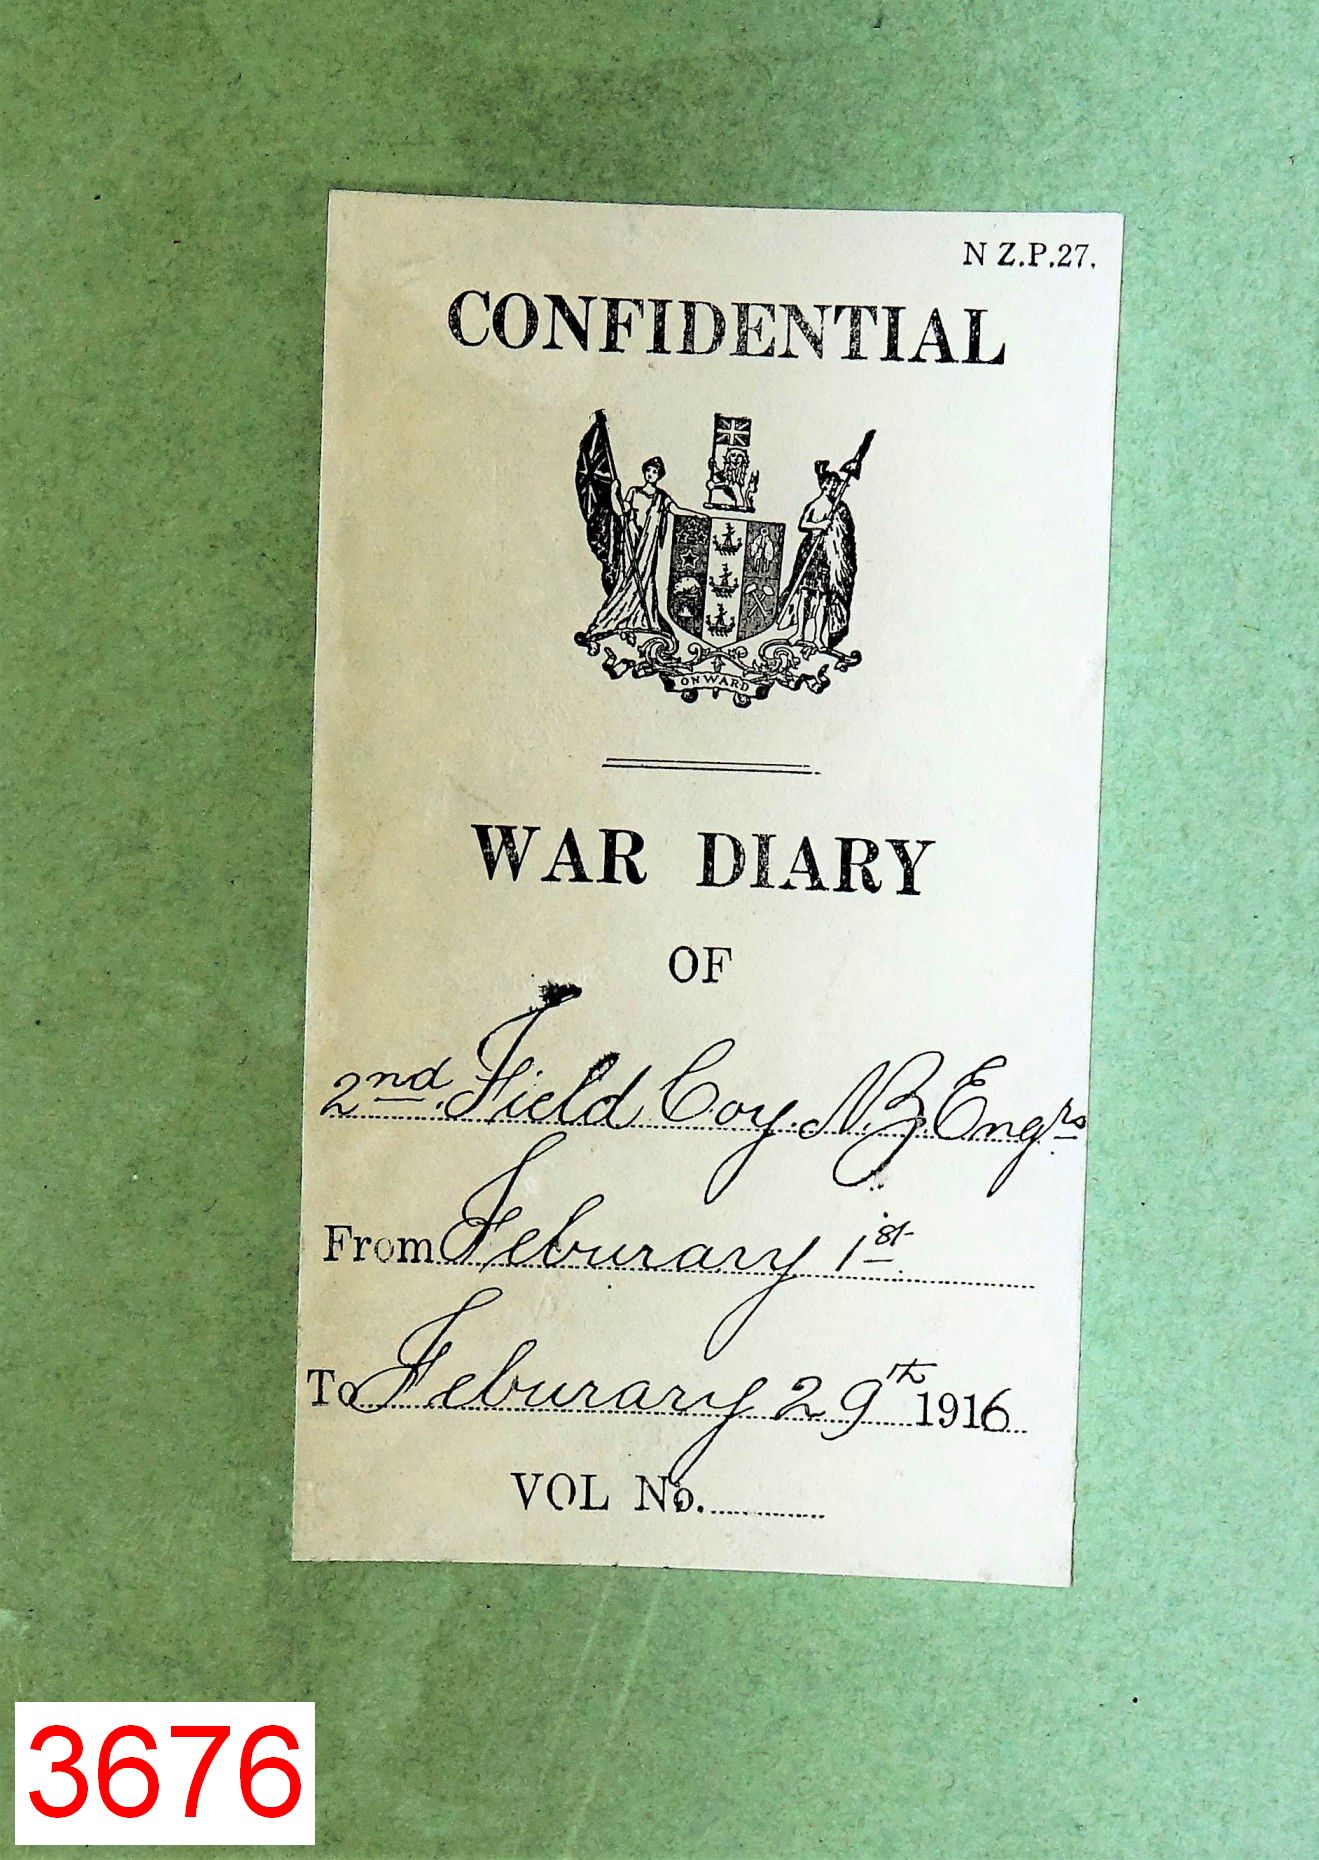 N Z.P.27.
CONFIDENTIAL
ONWARD
WAR DIARY
OF
2nd. Field Coy. N.Z. Engrs
From Feburary 1st
To Feburary 29th 1916
VOL No.
3676